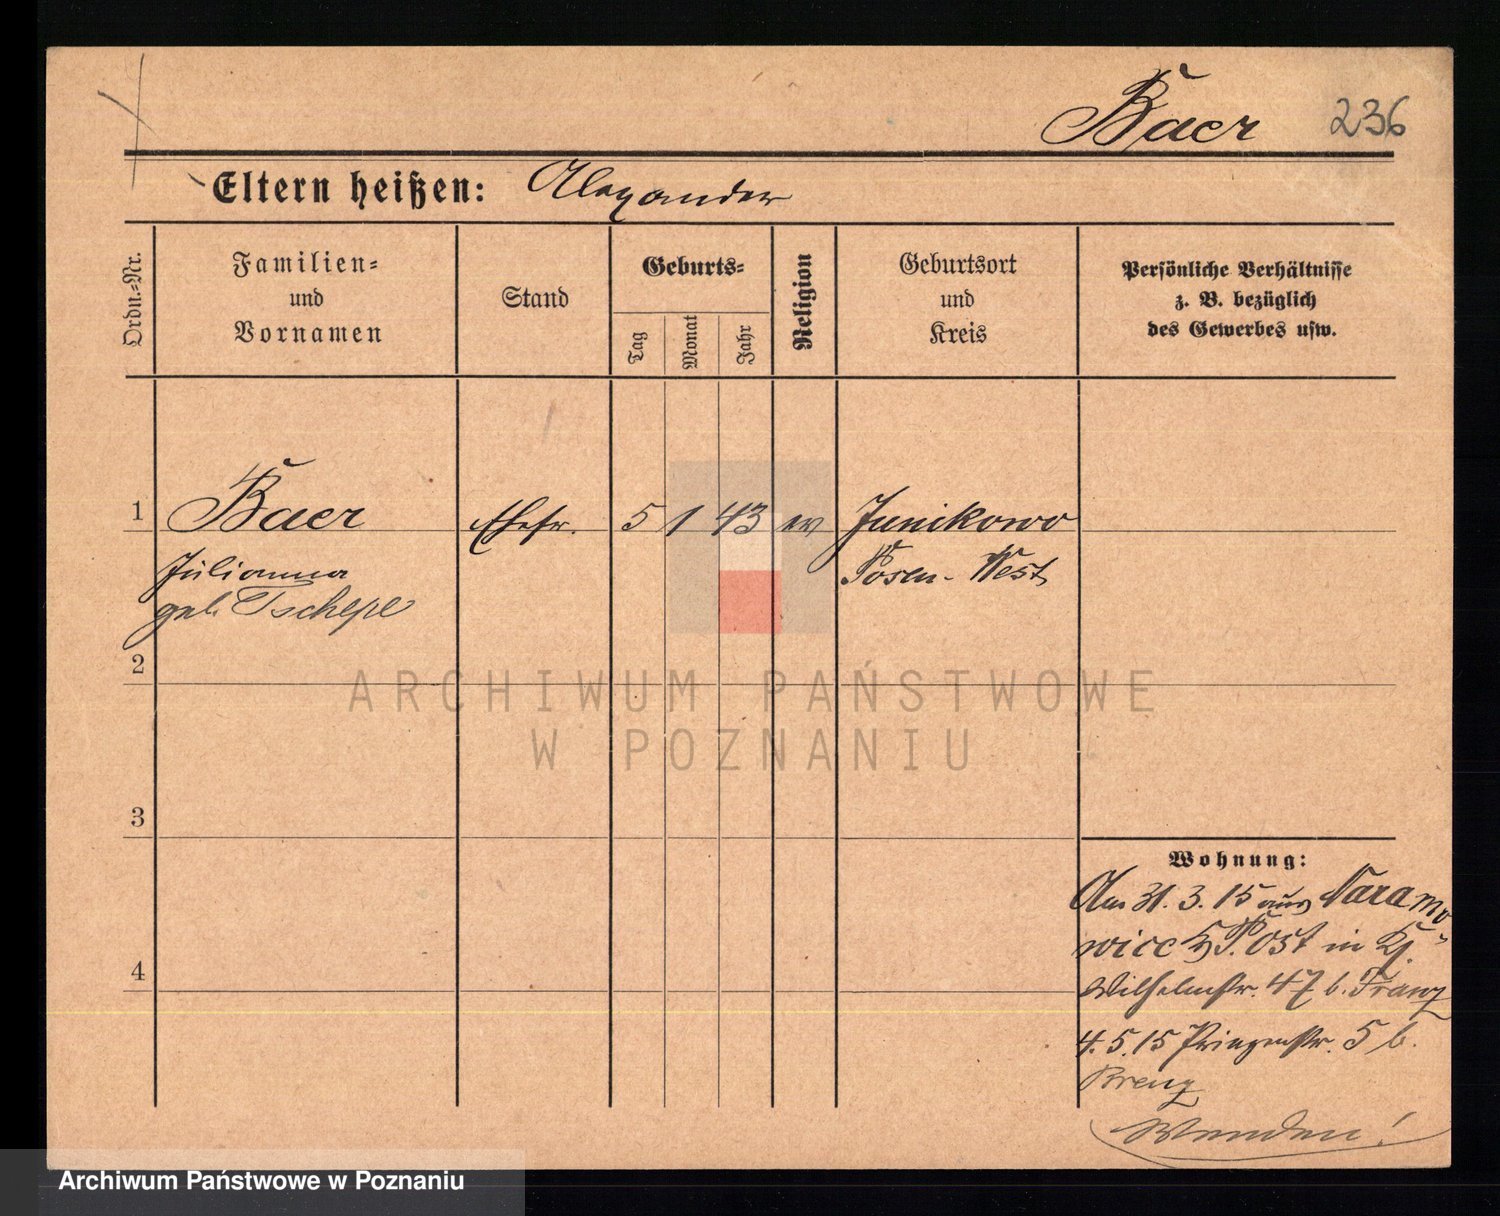 Baer 236
Eltern heißen: Alexander
Ordn.-Nr.
Familien-
und
Vornamen
Stand
Geburts-
Tag
Monat
Jahr
Religion
Geburtsort
und
Kreis
Persönliche Verhältnisse
z. B. bezüglich
des Gewerbes usw.
1 Baer Ehefr. 5 1 43 ev Junikowo
Julianna Posen-West
geb. Tschepe
2
ARCHIWUM PAŃSTWOWE
W POZNANIU
3
Wohnung:
Am 31. 3. 15 aus Naramo-
wice P. Ost in
4
Wilhelmstr. 47 b. Franz
4. 5. 15 Prinzenstr. 5 b.
Krenz
Wenden!
Archiwum Państwowe w Poznaniu